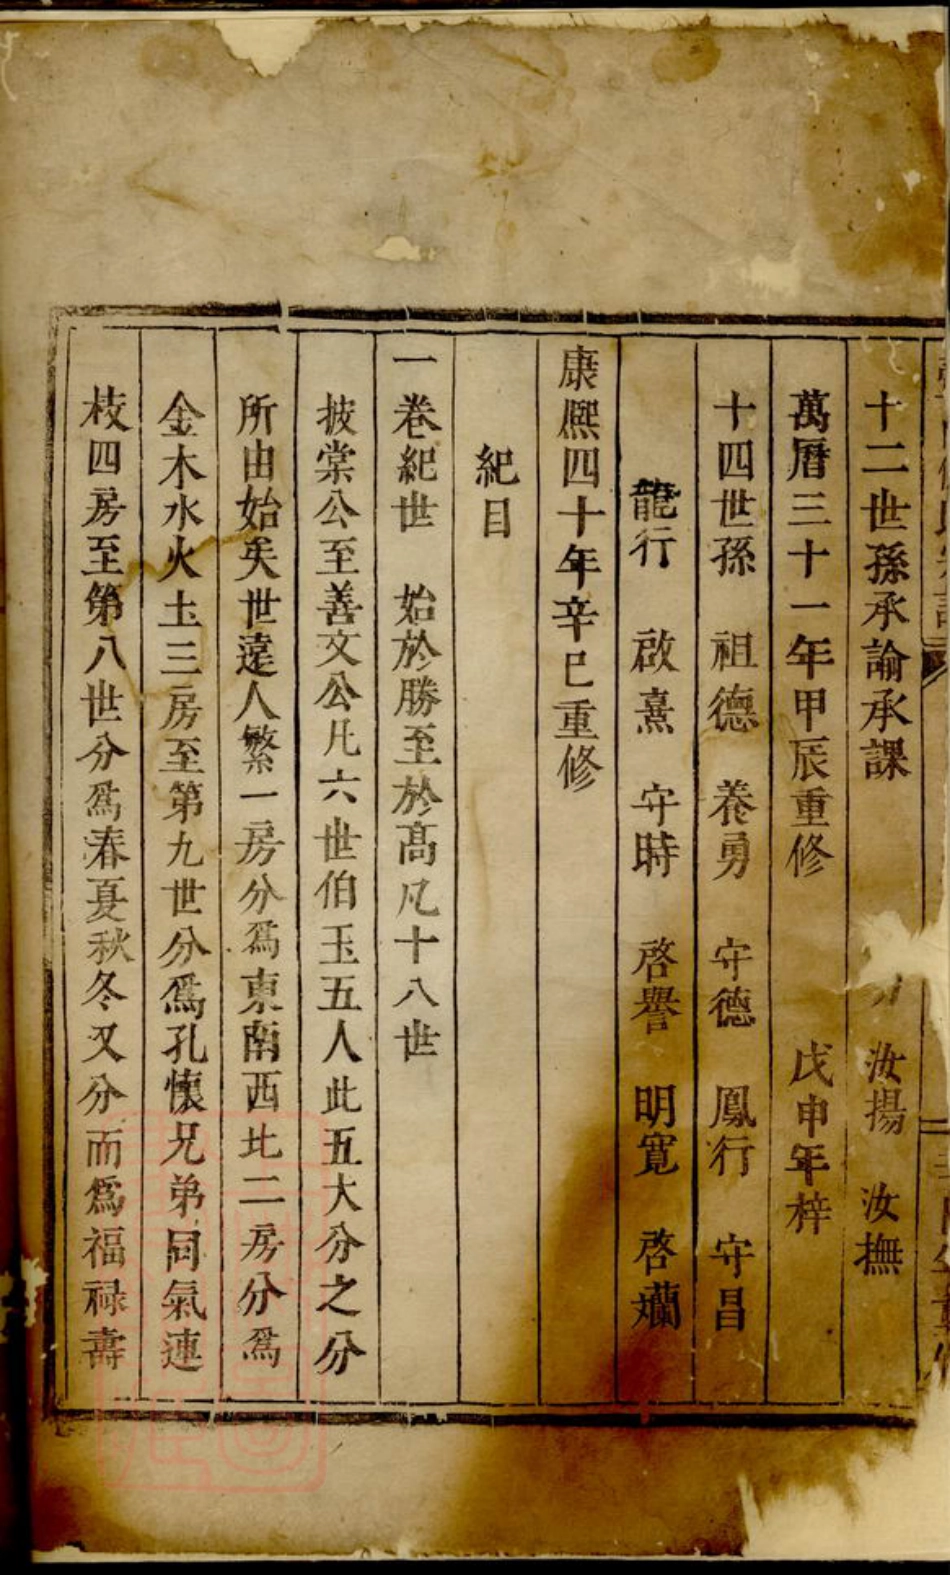 十二世孫承諭承課 汝揚 汝撫
萬曆三十一年甲辰重修 戊申年梓
十四世孫 祖德 養勇 守德 鳳行 守昌
龍行 啟熹 守時 啓譽 明寬 啓斕
康熈四十年辛巳重修
紀目
一卷紀世 始於勝至於高凡十八世
披棠公至善文公凡六世伯玉五人此五大分之分
所由始矣世遠人繁一房分爲東南西北二房分爲
金木水火土三房至第九世分爲孔懷兄弟同氣連
枝四房至第八世分爲春夏秋冬又分而爲福禄壽